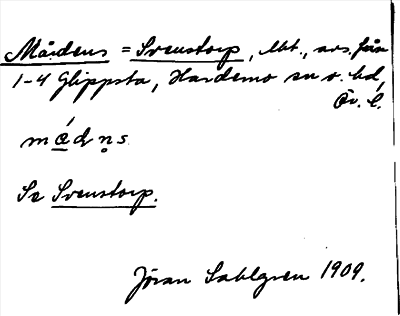 Mårdens = Svenstorp, lht., avs. från
1-4 Glippsta, Hardemo sn o. hd,
Ör. l.
mɑ́dn̥s
Se Svenstorp.
Jöran Sahlgren 1909.